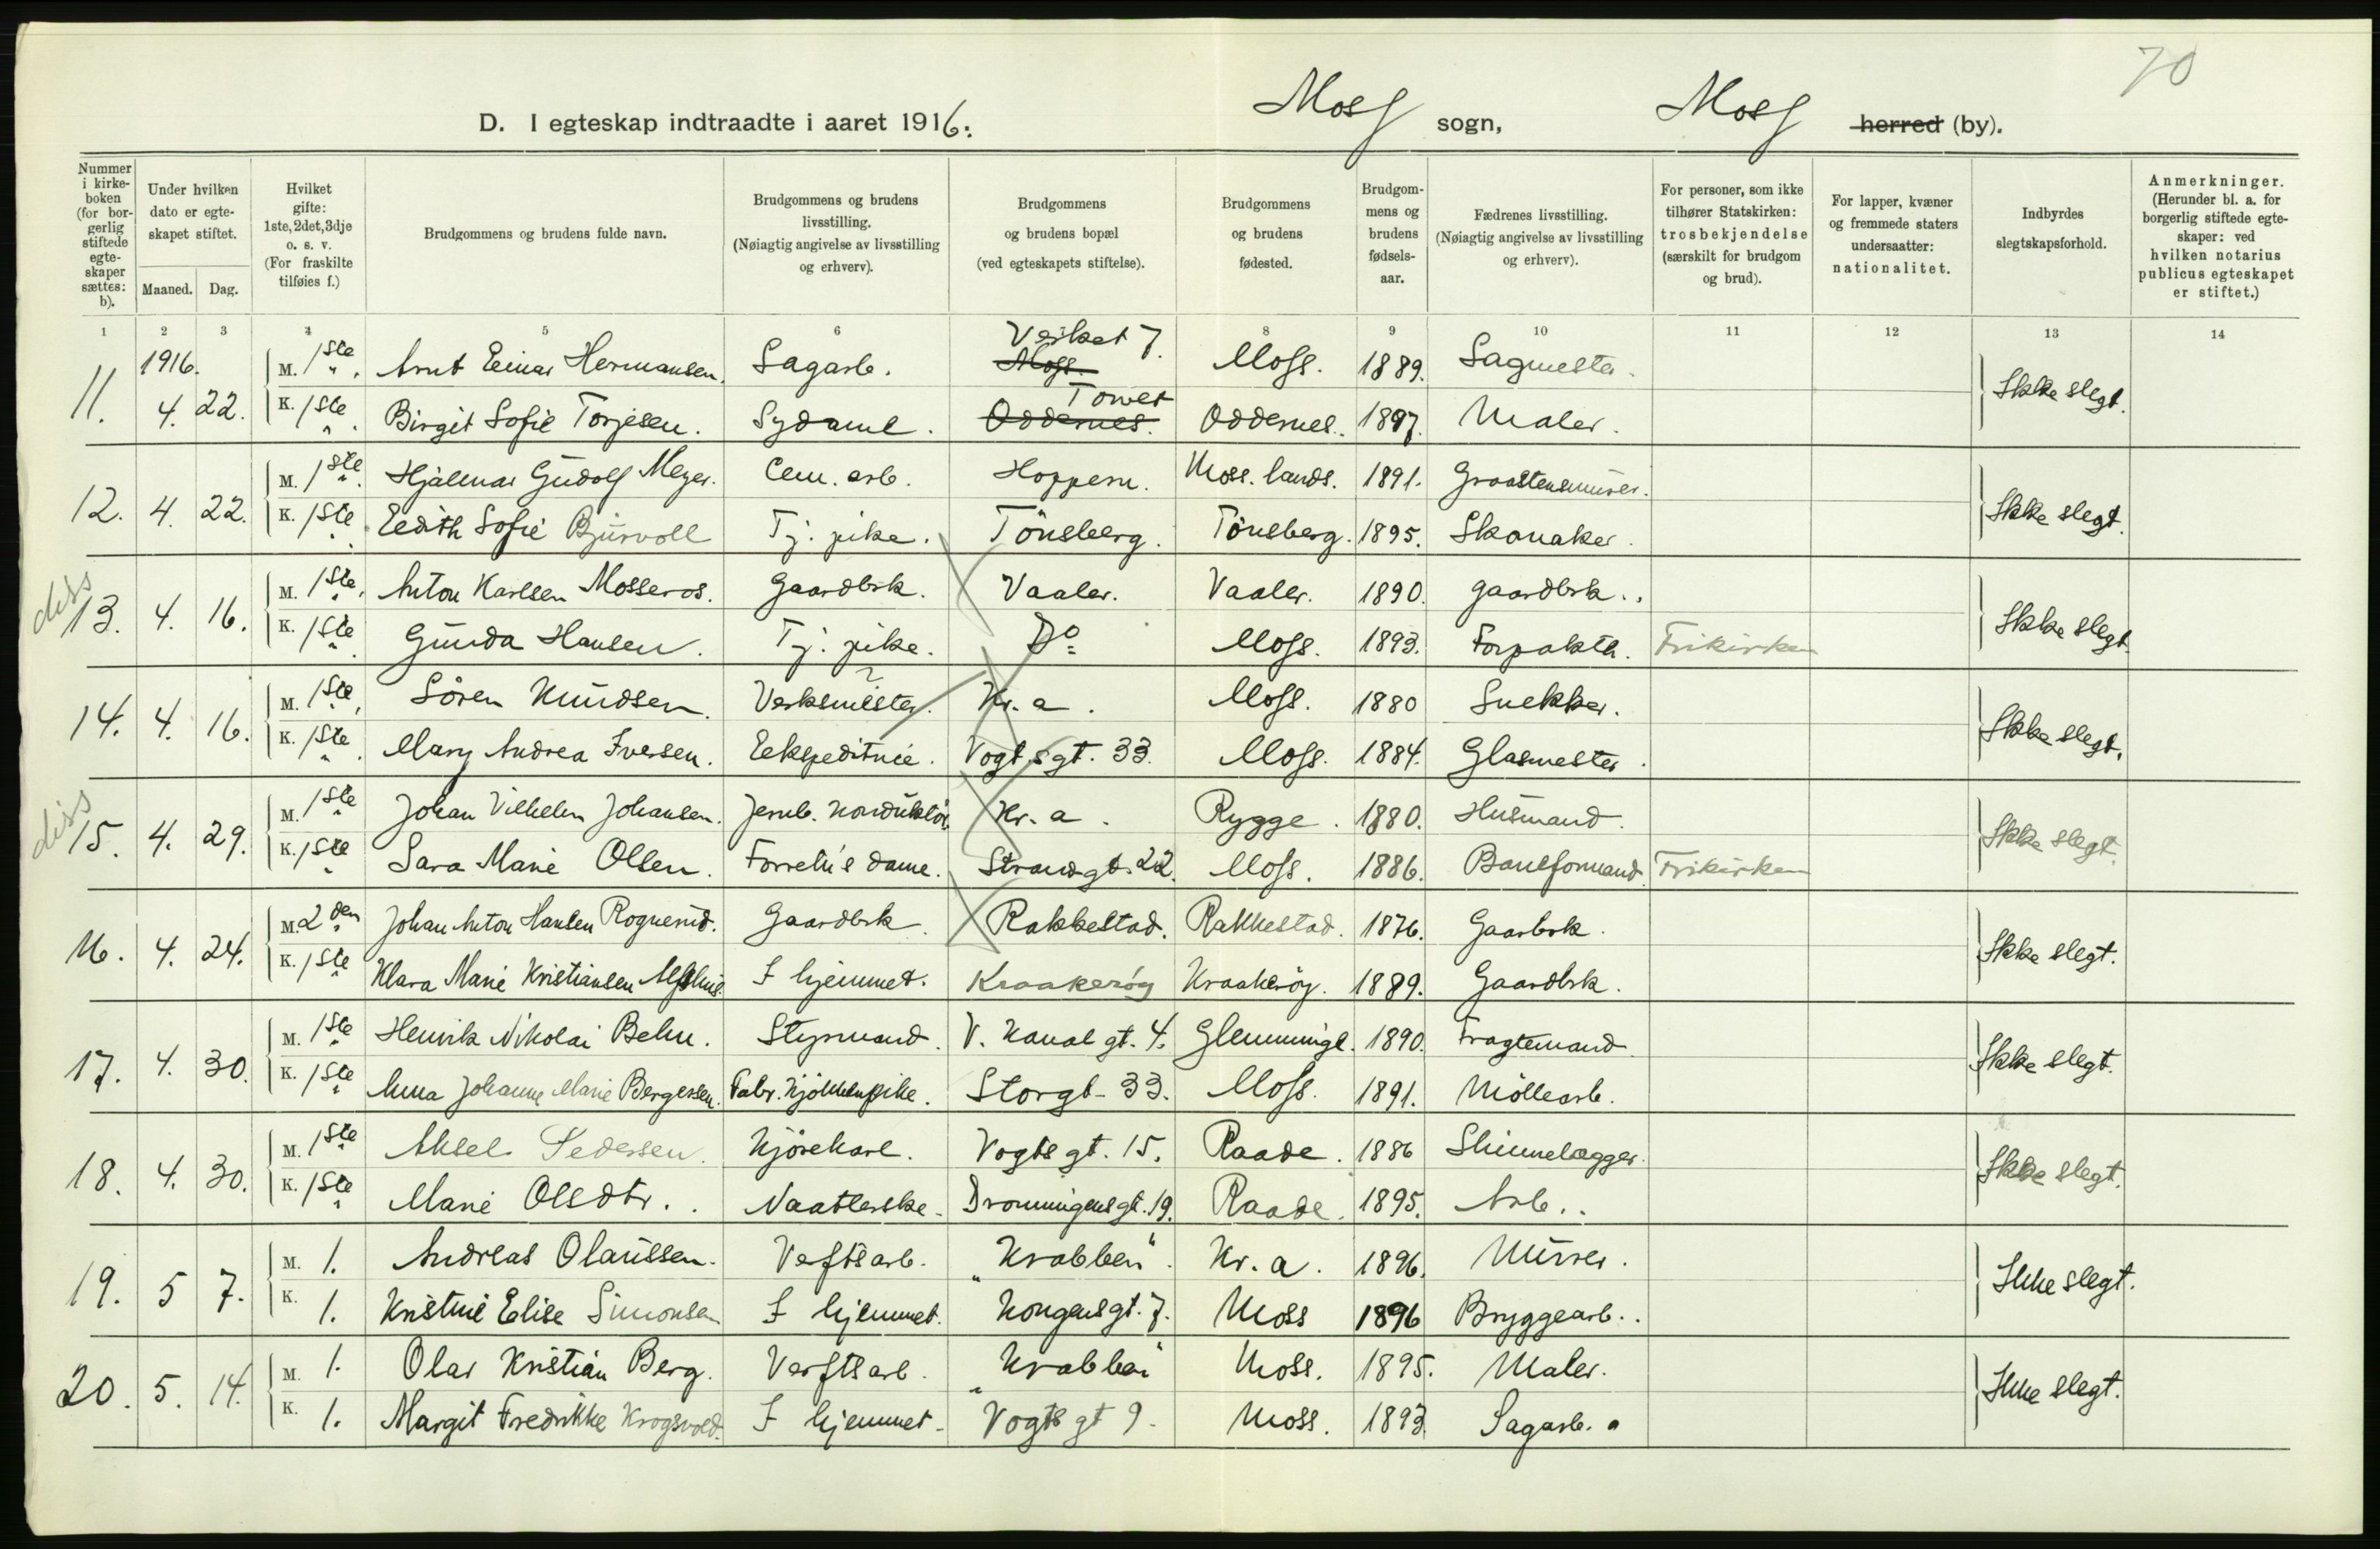 70
D. I egteskap indtraadte i aaret 1916. Moss sogn, Moss herred (by).
Nummer i kirkeboken (for borgerlig stiftede egteskaper sættes: b). | Under hvilken dato er egteskapet stiftet. Maaned. Dag. | Hvilket gifte: 1ste, 2det, 3dje o. s. v. (For fraskilte tilføies f.) | Brudgommens og brudens fulde navn. | Brudgommens og brudens livsstilling. (Nøiagtig angivelse av livsstilling og erhverv). | Brudgommens og brudens bopæl (ved egteskapets stiftelse). | Brudgommens og brudens fødested. | Brudgommens og brudens fødselsaar. | Fædrenes livsstilling. (Nøiagtig angivelse av livsstilling og erhverv). | For personer, som ikke tilhører Statskirken: trosbekjendelse (særskilt for brudgom og brud). | For lapper, kvæner og fremmede staters undersaatter: nationalitet. | Indbyrdes slegtskapsforhold. | Anmerkninger. (Herunder bl. a. for borgerlig stiftede egteskaper: ved hvilken notarius publicus egteskapet er stiftet.)
1 2 3 4 5 6 8 9 10 11 12 13 14
1916.
11. 4. 22. M. 1ste Arnt Einar Hermansen. Sagarb. Moss. Verket 7. Moss. 1889. Sagmester. Ikke slegt.
K. 1ste Birgit Sofie Torjesen. Sydame. Oddernes. Torvet Oddernes. 1897. Maler.
12. 4. 22. M. 1ste Hjalmar Gudolf Meyer. Cem. arb. Hoppern. Moss. lands. 1891. Graastensmurer. Ikke slegt.
K. 1ste Edith Sofie Bjurvoll Tj. pike. Tönsberg. Tönsberg. 1895. Skomaker.
diss
13. 4. 16. M. 1ste Anton Karlsen Mosseros. Gaardbrk. Vaaler. Vaaler. 1890. gaardbrk. Ikke slegt.
K. 1ste Gunda Hansen. Tj. pike. Do Moss. 1893. Forpakter. Frikirken
14. 4. 16. M. 1ste Sören Knudsen. Verksmester. Kr.a. Moss. 1880 Snekker. Ikke slegt.
K. 1ste Mary Andrea Iversen. Ekspeditrice. Vogts gt. 33. Moss. 1884. Glasmester.
diss
15. 4. 29. M. 1ste Johan Vilhelm Johansen. Jernb. konduktör Kr.a. Rygge. 1880. Husmand. Ikke slegt.
K. 1ste Sara Marie Olsen. Forretn's dame. Strandgt. 22. Moss. 1886. Baneformand. Frikirken
16. 4. 24. M. 2den Johan Anton Hansen Rognerud. Gaardbrk. Rakkestad. Rakkestad. 1876. Gaarbrk. Ikke slegt.
K. 1ste Klara Marie Kristiansen I hjemmet. Kraakerøy Kraakeröy. 1889. Gaardbrk.
17. 4. 30. M. 1ste Henrik Nikolai Behn. Styrmand. V. Kanal gt. 4. Glemminge. 1890. Fragtemand. Ikke slegt.
K. 1ste Anna Johanne Marie Bergersen. Fabr. kjökkenpike. Storgt. 33. Moss. 1891. Möllearb.
18. 4. 30. M. 1ste Aksel Pedersen. Kjörekarl. Vogts gt. 15. Raade. 1886 Skinnelægger. Ikke slegt.
K. 1ste Marie Olsdtr. Naatlerske. Dronningensgt. 19. Raade. 1895. Arb.
19. 5 7. M. 1. Andreas Olaussen. Verftsarb. "Krabben". Kr.a. 1896. Murer. Ikke slegt.
K. 1. Kristine Elise Simonsen I hjemmet. Kongensgt. 7. Moss 1896 Bryggearb.
20. 5. 14. M. 1. Olar Kristian Berg. Verftsarb. "Krabben" Moss. 1895. Maler. Ikke slegt.
K. 1. Margit Fredrikke Krogsvold. I hjemmet. Vogts gt 9. Moss. 1893. Sagarb.